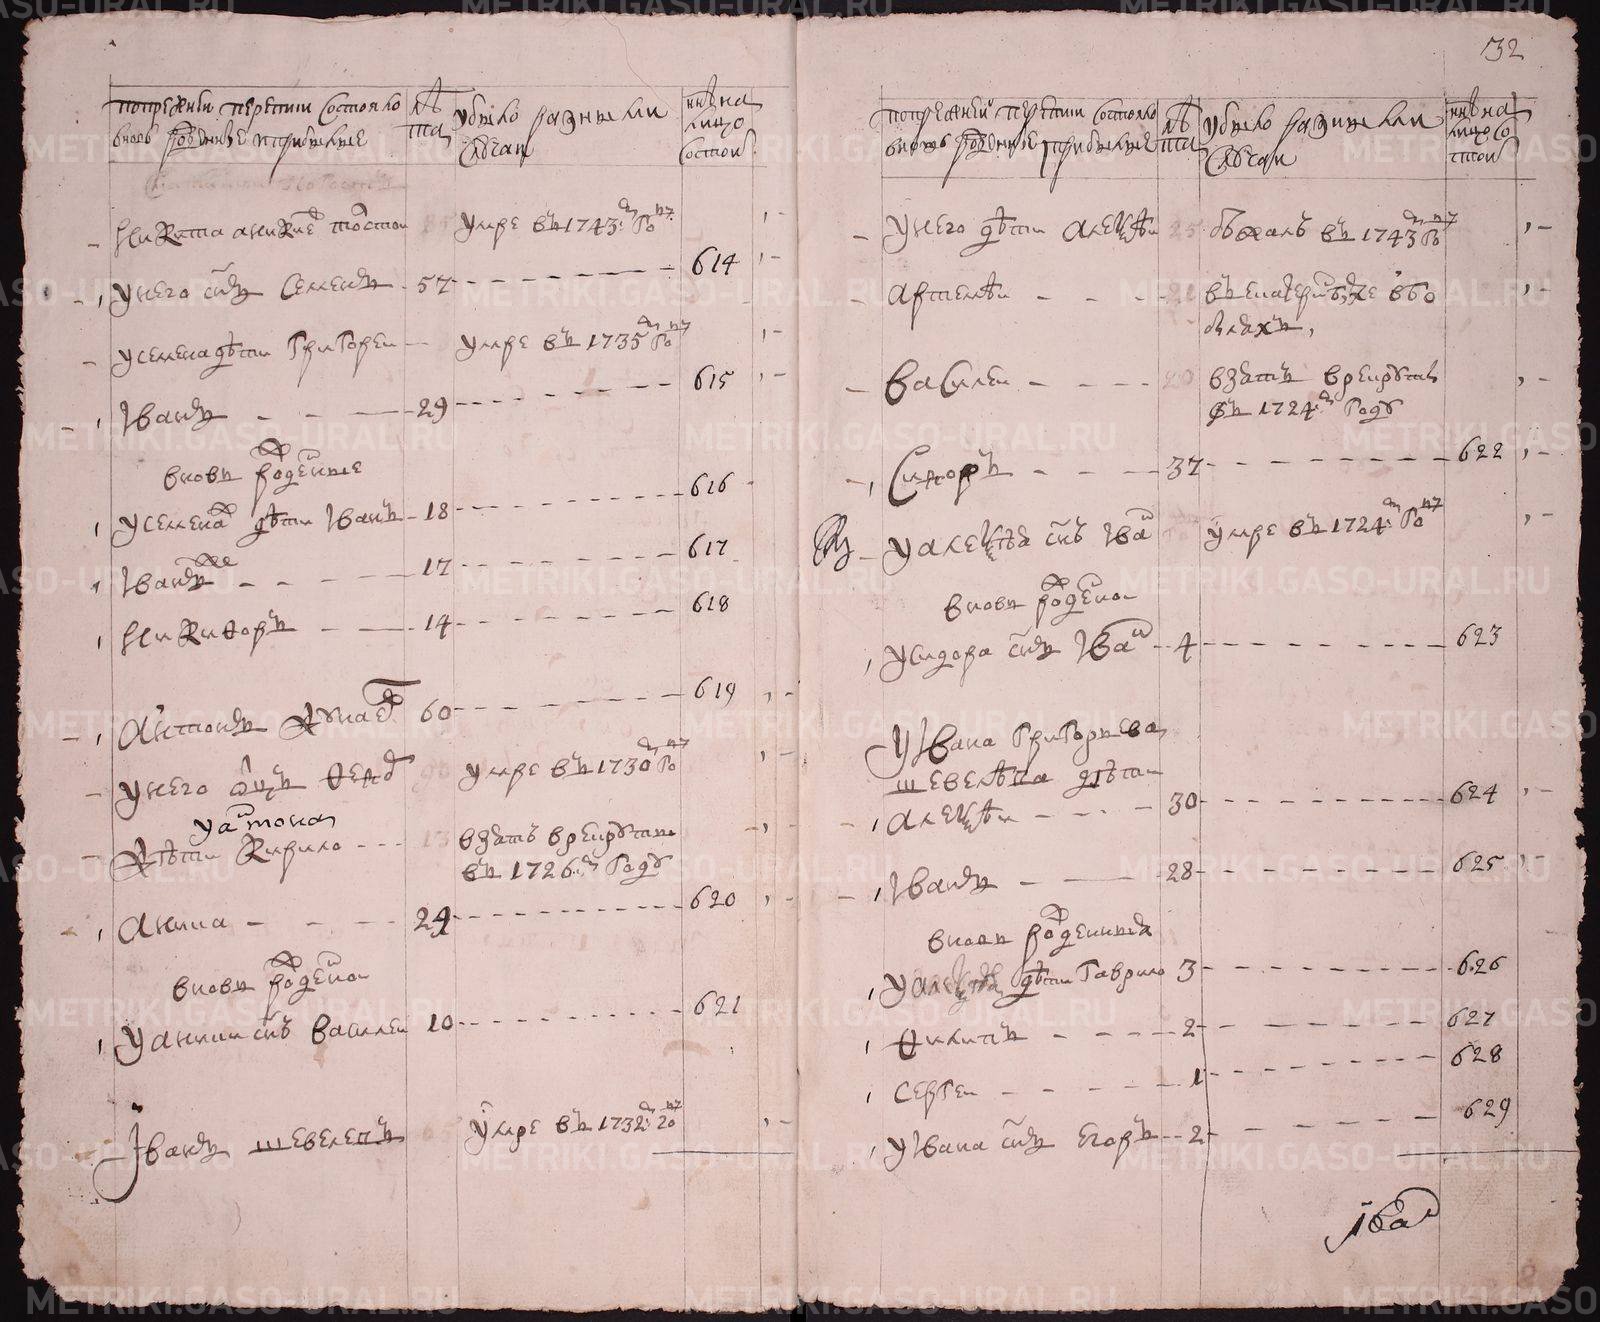 по прежней переписи состояло
вновь рожденные и прибылые
лѣ
та
убыло разными
случаи
нынѣ на
лицо
состои
Никита Аникие
умре въ 1743м го
у него снъ Семенъ 57 614
у Семена дѣти Григореи
умре въ 1735м го
Иванъ 29 615
вновь рожденые
у Семена дѣти Иванъ 18 616
Иванъ же 17 617
Никифоръ 14 618
Антонъ 60 619
у него оцъ Фед
умре въ 1730м го
у Антона
дѣти Кирило 13
взятъ в рекруты
въ 1726м году
Аника 24 620
вновь рожденои
у Аники снъ Василеи 10 621
Иванъ Шевелевъ
умре въ 1732м го
32
по прежней переписи состояло
вновь рожденные и прибылые
лѣ
та
убыло разными
случаи
нынѣ на
лицо со
стои
у него дѣти Алеѯѣи 25
въ 1743 го
Артемѣи
Василеи 20
взятъ в рекруты
въ 1724м году
Сидоръ 37 622
у Алеѯѣя снъ Ива
умре въ 1724м го
вновь рожденои
у Сидора снъ Ива 4 623
у Ивана Григорьева
Шевелѣва дѣти
Алеѯѣи 30 624
Иванъ 28 625
вновь рожденныя
у Алеѯѣя дѣти Гаврило 3 626
Филипъ 2 627
Сергеи 1 628
у Ивана снъ Егоръ 2 629
Ива
METRIKI.GASO-URAL.RU